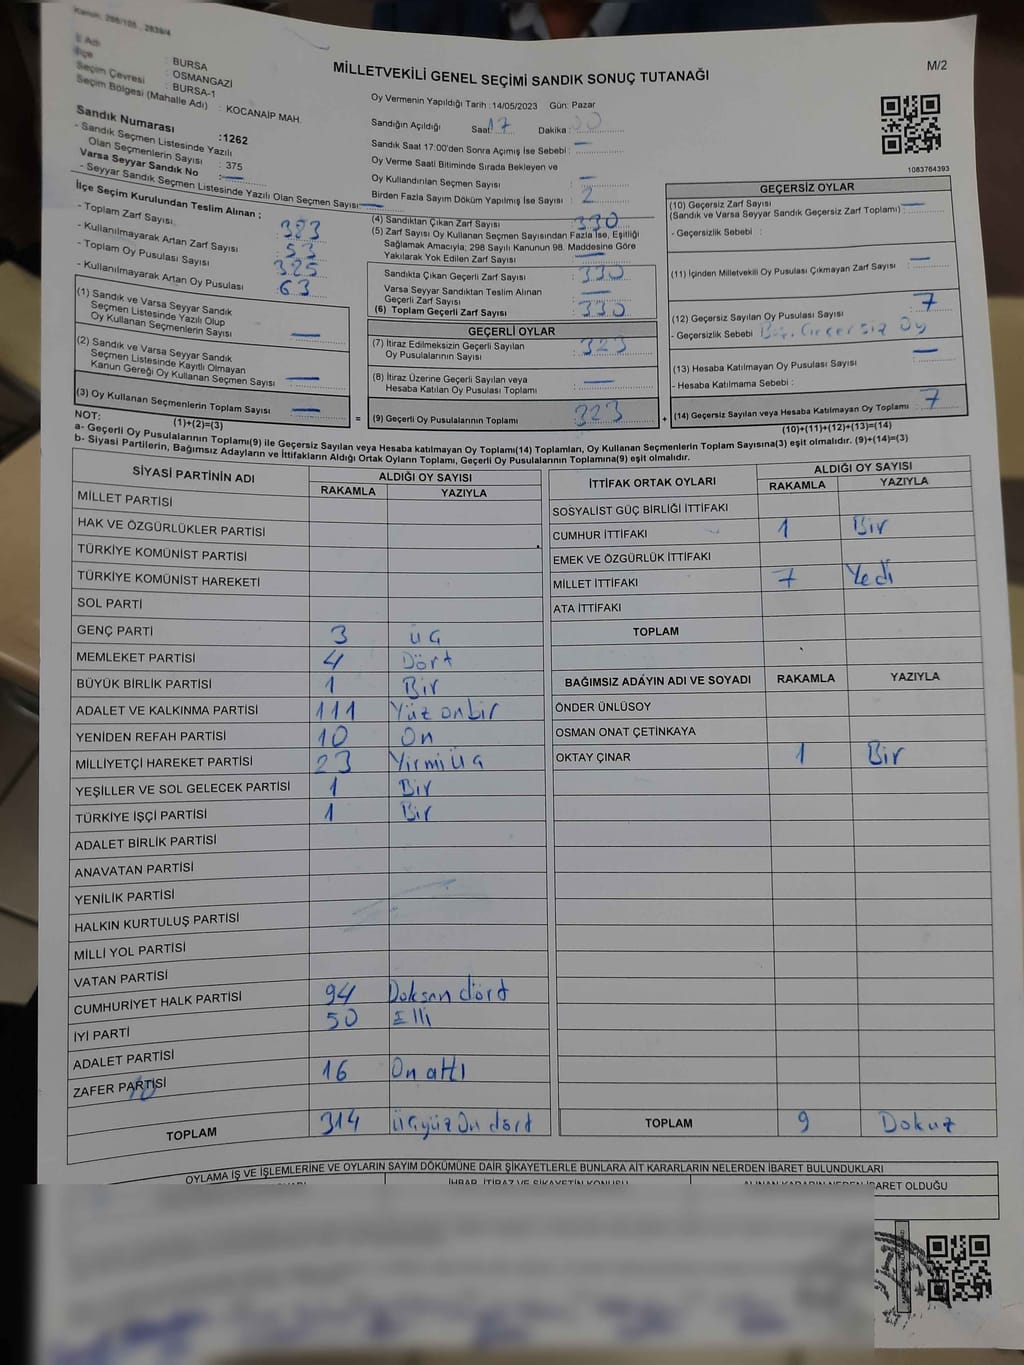 Kanun: 298/105 , 2839/4
İl Adı : BURSA
İlçe : OSMANGAZİ
Seçim Çevresi : BURSA-1
Seçim Bölgesi (Mahalle Adı) : KOCANAİP MAH.
MİLLETVEKİLİ GENEL SEÇİMİ SANDIK SONUÇ TUTANAĞI
M/2
Sandık Numarası :1262
- Sandık Seçmen Listesinde Yazılı
Olan Seçmenlerin Sayısı : 375
Varsa Seyyar Sandık No : —
- Seyyar Sandık Seçmen Listesinde Yazılı Olan Seçmen Sayısı: —
Oy Vermenin Yapıldığı Tarih :14/05/2023 Gün: Pazar
Sandığın Açıldığı Saat 17 Dakika : 00
Sandık Saat 17:00'den Sonra Açımış İse Sebebi : —
Oy Verme Saati Bitiminde Sırada Bekleyen ve
Oy Kullandırılan Seçmen Sayısı : —
Birden Fazla Sayım Döküm Yapılmış İse Sayısı : 2
1083764393
İlçe Seçim Kurulundan Teslim Alınan ;
- Toplam Zarf Sayısı : 383
- Kullanılmayarak Artan Zarf Sayısı : 53
- Toplam Oy Pusulası Sayısı : 385
- Kullanılmayarak Artan Oy Pusulası : 63
(1) Sandık ve Varsa Seyyar Sandık
Seçmen Listesinde Yazılı Olup
Oy Kullanan Seçmenlerin Sayısı : —
(2) Sandık ve Varsa Seyyar Sandık
Seçmen Listesinde Kayıtlı Olmayan
Kanun Gereği Oy Kullanan Seçmen Sayısı : —
(3) Oy Kullanan Seçmenlerin Toplam Sayısı : —
(1)+(2)=(3)
(4) Sandıktan Çıkan Zarf Sayısı : 330
(5) Zarf Sayısı Oy Kullanan Seçmen Sayısından Fazla İse, Eşitliği
Sağlamak Amacıyla; 298 Sayılı Kanunun 98. Maddesine Göre
Yakılarak Yok Edilen Zarf Sayısı : —
Sandıkta Çıkan Geçerli Zarf Sayısı : 330
Varsa Seyyar Sandıktan Teslim Alınan
Geçerli Zarf Sayısı : —
(6) Toplam Geçerli Zarf Sayısı : 330
GEÇERLİ OYLAR
(7) İtiraz Edilmeksizin Geçerli Sayılan
Oy Pusulalarının Sayısı : 323
(8) İtiraz Üzerine Geçerli Sayılan veya
Hesaba Katılan Oy Pusulası Toplamı : —
= (9) Geçerli Oy Pusulalarının Toplamı 323 +
GEÇERSİZ OYLAR
(10) Geçersiz Zarf Sayısı : —
(Sandık ve Varsa Seyyar Sandık Geçersiz Zarf Toplamı)
- Geçersizlik Sebebi :
(11) İçinden Milletvekili Oy Pusulası Çıkmayan Zarf Sayısı : —
(12) Geçersiz Sayılan Oy Pusulası Sayısı : 7
- Geçersizlik Sebebi : Geçersiz Oy
(13) Hesaba Katılmayan Oy Pusulası Sayısı : —
- Hesaba Katılmama Sebebi :
(14) Geçersiz Sayılan veya Hesaba Katılmayan Oy Toplamı : 7
(10)+(11)+(12)+(13)=(14)
NOT:
a- Geçerli Oy Pusulalarının Toplamı(9) ile Geçersiz Sayılan veya Hesaba katılmayan Oy Toplamı(14) Toplamları, Oy Kullanan Seçmenlerin Toplam Sayısına(3) eşit olmalıdır. (9)+(14)=(3)
b- Siyasi Partilerin, Bağımsız Adayların ve İttifakların Aldığı Ortak Oyların Toplamı, Geçerli Oy Pusulalarının Toplamına(9) eşit olmalıdır.
SİYASİ PARTİNİN ADI ALDIĞI OY SAYISI
RAKAMLA YAZIYLA
MİLLET PARTİSİ
HAK VE ÖZGÜRLÜKLER PARTİSİ
TÜRKİYE KOMÜNİST PARTİSİ
TÜRKİYE KOMÜNİST HAREKETİ
SOL PARTİ
GENÇ PARTİ 3 üç
MEMLEKET PARTİSİ 4 Dört
BÜYÜK BİRLİK PARTİSİ 1 Bir
ADALET VE KALKINMA PARTİSİ 111 Yüz onbir
YENİDEN REFAH PARTİSİ 10 On
MİLLİYETÇİ HAREKET PARTİSİ 23 Yirmiüç
YEŞİLLER VE SOL GELECEK PARTİSİ 1 Bir
TÜRKİYE İŞÇİ PARTİSİ 1 Bir
ADALET BİRLİK PARTİSİ
ANAVATAN PARTİSİ
YENİLİK PARTİSİ
HALKIN KURTULUŞ PARTİSİ
MİLLİ YOL PARTİSİ
VATAN PARTİSİ
CUMHURİYET HALK PARTİSİ 94 Doksan dört
İYİ PARTİ 50 Elli
ADALET PARTİSİ
ZAFER PARTİSİ 16 On altı
TOPLAM 314 üçyüz On dört
İTTİFAK ORTAK OYLARI ALDIĞI OY SAYISI
RAKAMLA YAZIYLA
SOSYALİST GÜÇ BİRLİĞİ İTTİFAKI
CUMHUR İTTİFAKI 1 Bir
EMEK VE ÖZGÜRLÜK İTTİFAKI
MİLLET İTTİFAKI 7 Yedi
ATA İTTİFAKI
TOPLAM
BAĞIMSIZ ADAYIN ADI VE SOYADI RAKAMLA YAZIYLA
ÖNDER ÜNLÜSOY
OSMAN ONAT ÇETİNKAYA
OKTAY ÇINAR 1 Bir
TOPLAM 9 Dokuz
OYLAMA İŞ VE İŞLEMLERİNE VE OYLARIN SAYIM DÖKÜMÜNE DAİR ŞİKAYETLERLE BUNLARA AİT KARARLARIN NELERDEN İBARET BULUNDUKLARI
İHBAR, İTİRAZ VE ŞİKAYETİN KONUSU
ALINAN KARARIN NEDEN İBARET OLDUĞU